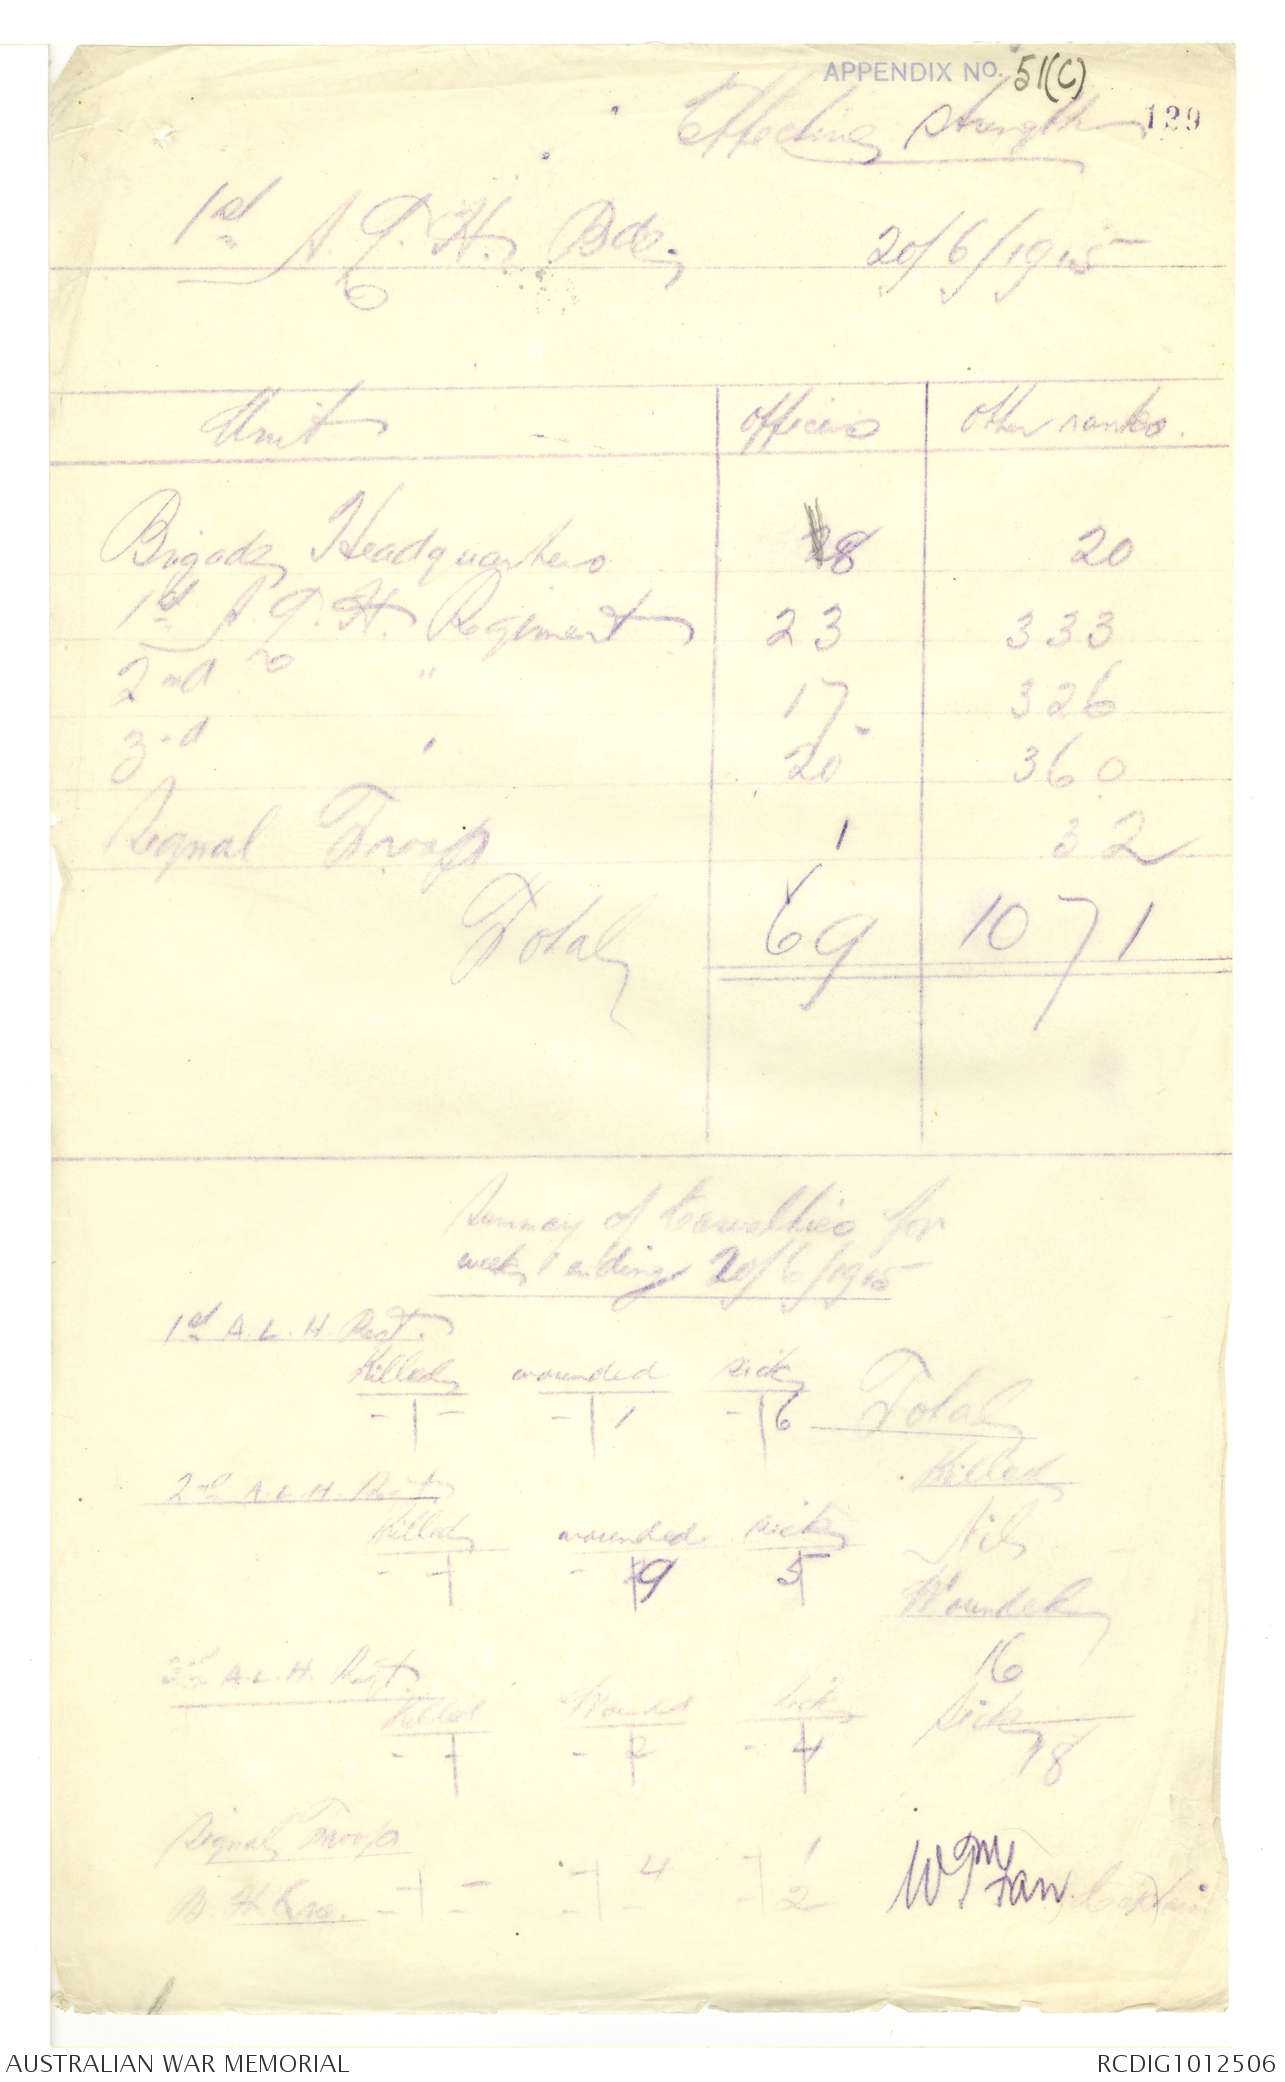 APPENDIX NO. 51(C)
Effective Strength 129
1st A.L.H. Bde. 20/6/1915
Unit Officers Other ranks.
Brigade Headquarters 8 20
1st A.L.H. Regiment 23 333
2nd do " 17 326
3rd " 20 360
Signal Troop 1 32
Total 69 1071
Summary of Casualties for
week ending 20/6/1915
1st A.L.H Regt.
Killed wounded sick Total
- | - - | 1 - | 6
Killed
2nd A.L.H. Regt
Killed wounded sick Nil
- - | - | 9 5
Wounded
16
3rd A.L.H. Regt.
Killed Wounded Sick Sick
- | - - | 2 - | 4 18
Signal Troop - | - - | 4 - | 1
B. H Qrs. - | - - | - - | 2
Captain
AUSTRALIAN WAR MEMORIAL RCDIG1012506